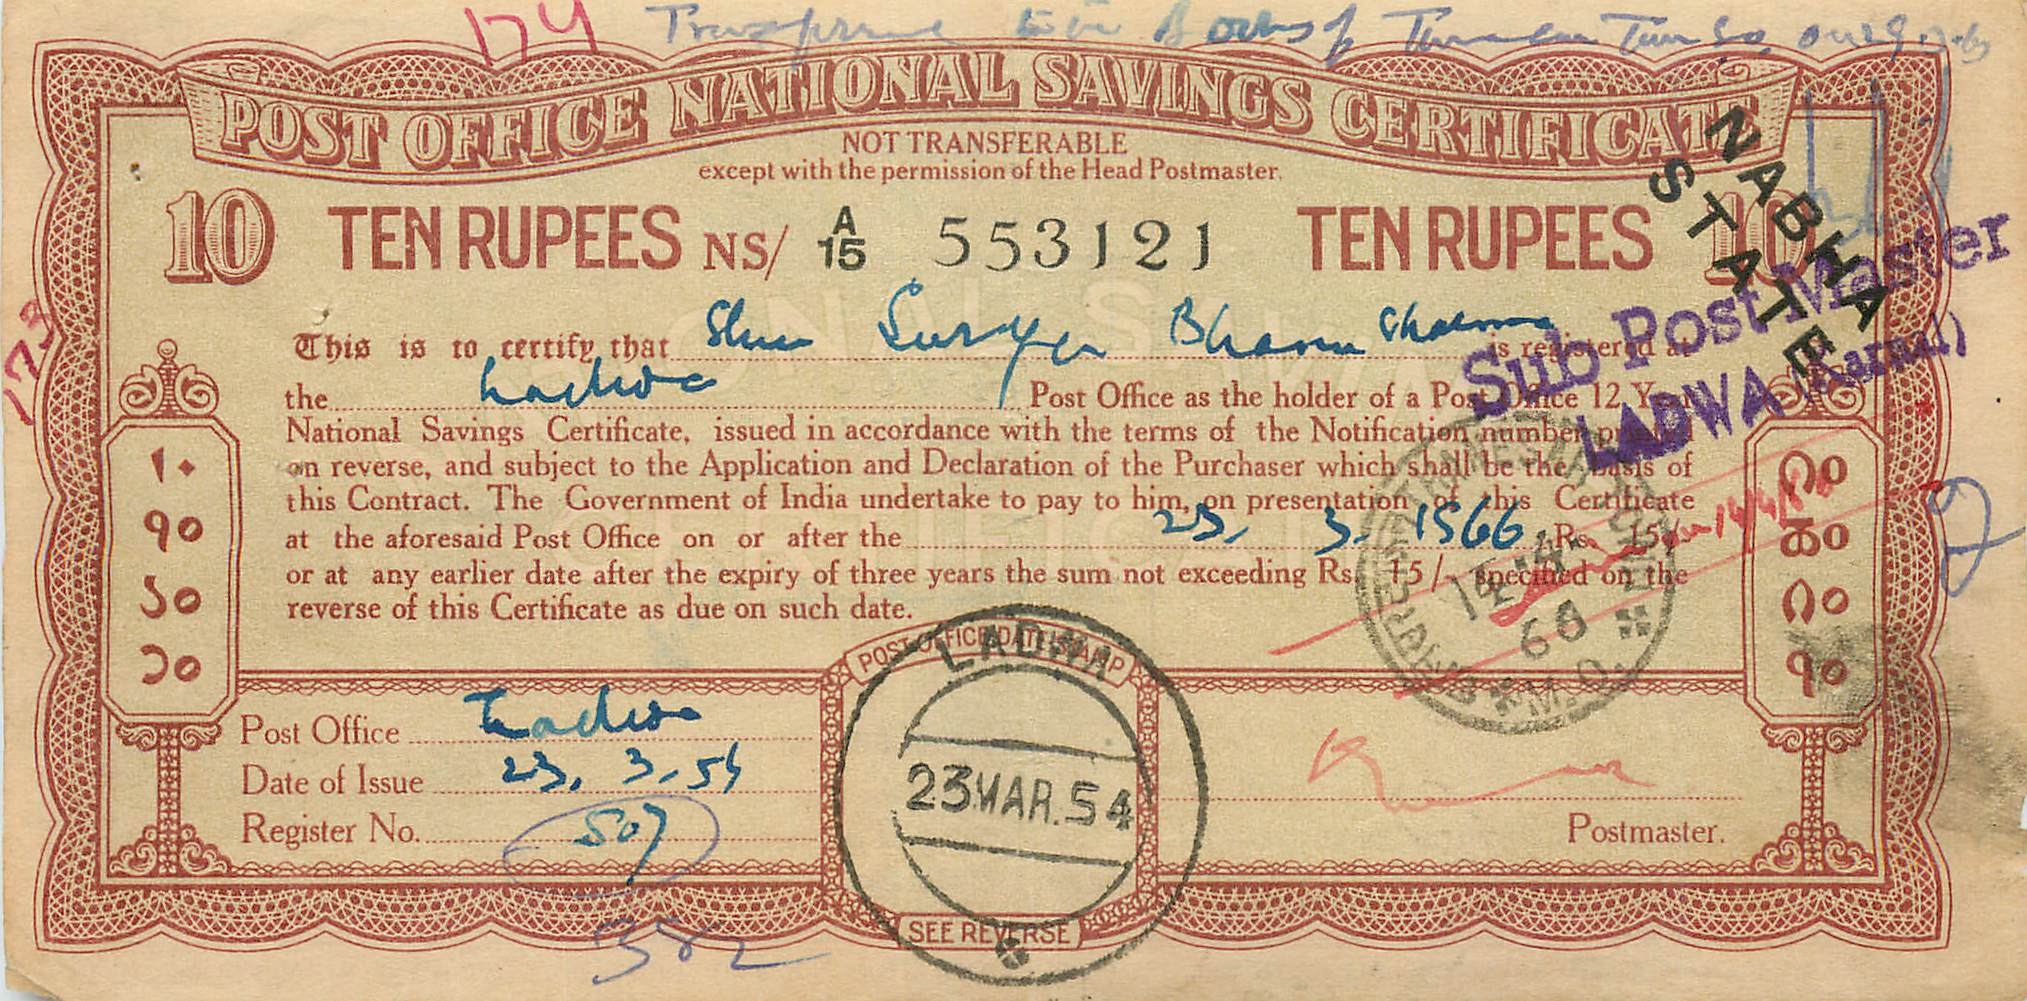 174
POST OFFICE NATIONAL SAVINGS CERTIFICATE
NOT TRANSFERABLE
except with the permission of the Head Postmaster.
10 TEN RUPEES NS/ A/15 553121 TEN RUPEES 10
NABHA
STATE
Sub Post Master
LADWA (Karnal)
173
This is to certify that Shri Surya Bhanu Sharma is registered at
the Ladwa Post Office as the holder of a Post Office 12 Year
National Savings Certificate, issued in accordance with the terms of the Notification number printed
on reverse, and subject to the Application and Declaration of the Purchaser which shall be the basis of
this Contract. The Government of India undertake to pay to him, on presentation of this Certificate
at the aforesaid Post Office on or after the 23. 3. 1966 Rs. 15/-
or at any earlier date after the expiry of three years the sum not exceeding Rs. 15/- specified on the
reverse of this Certificate as due on such date.
۱۰
१०
১০
੧੦
൧൦
௧௦
౧౦
૧૦
14 4 66
POST OFFICE DATE STAMP
LADWA
23 MAR. 54
Post Office Ladwa
Date of Issue 23. 3. 54
Register No. 507
Postmaster.
SEE REVERSE
382